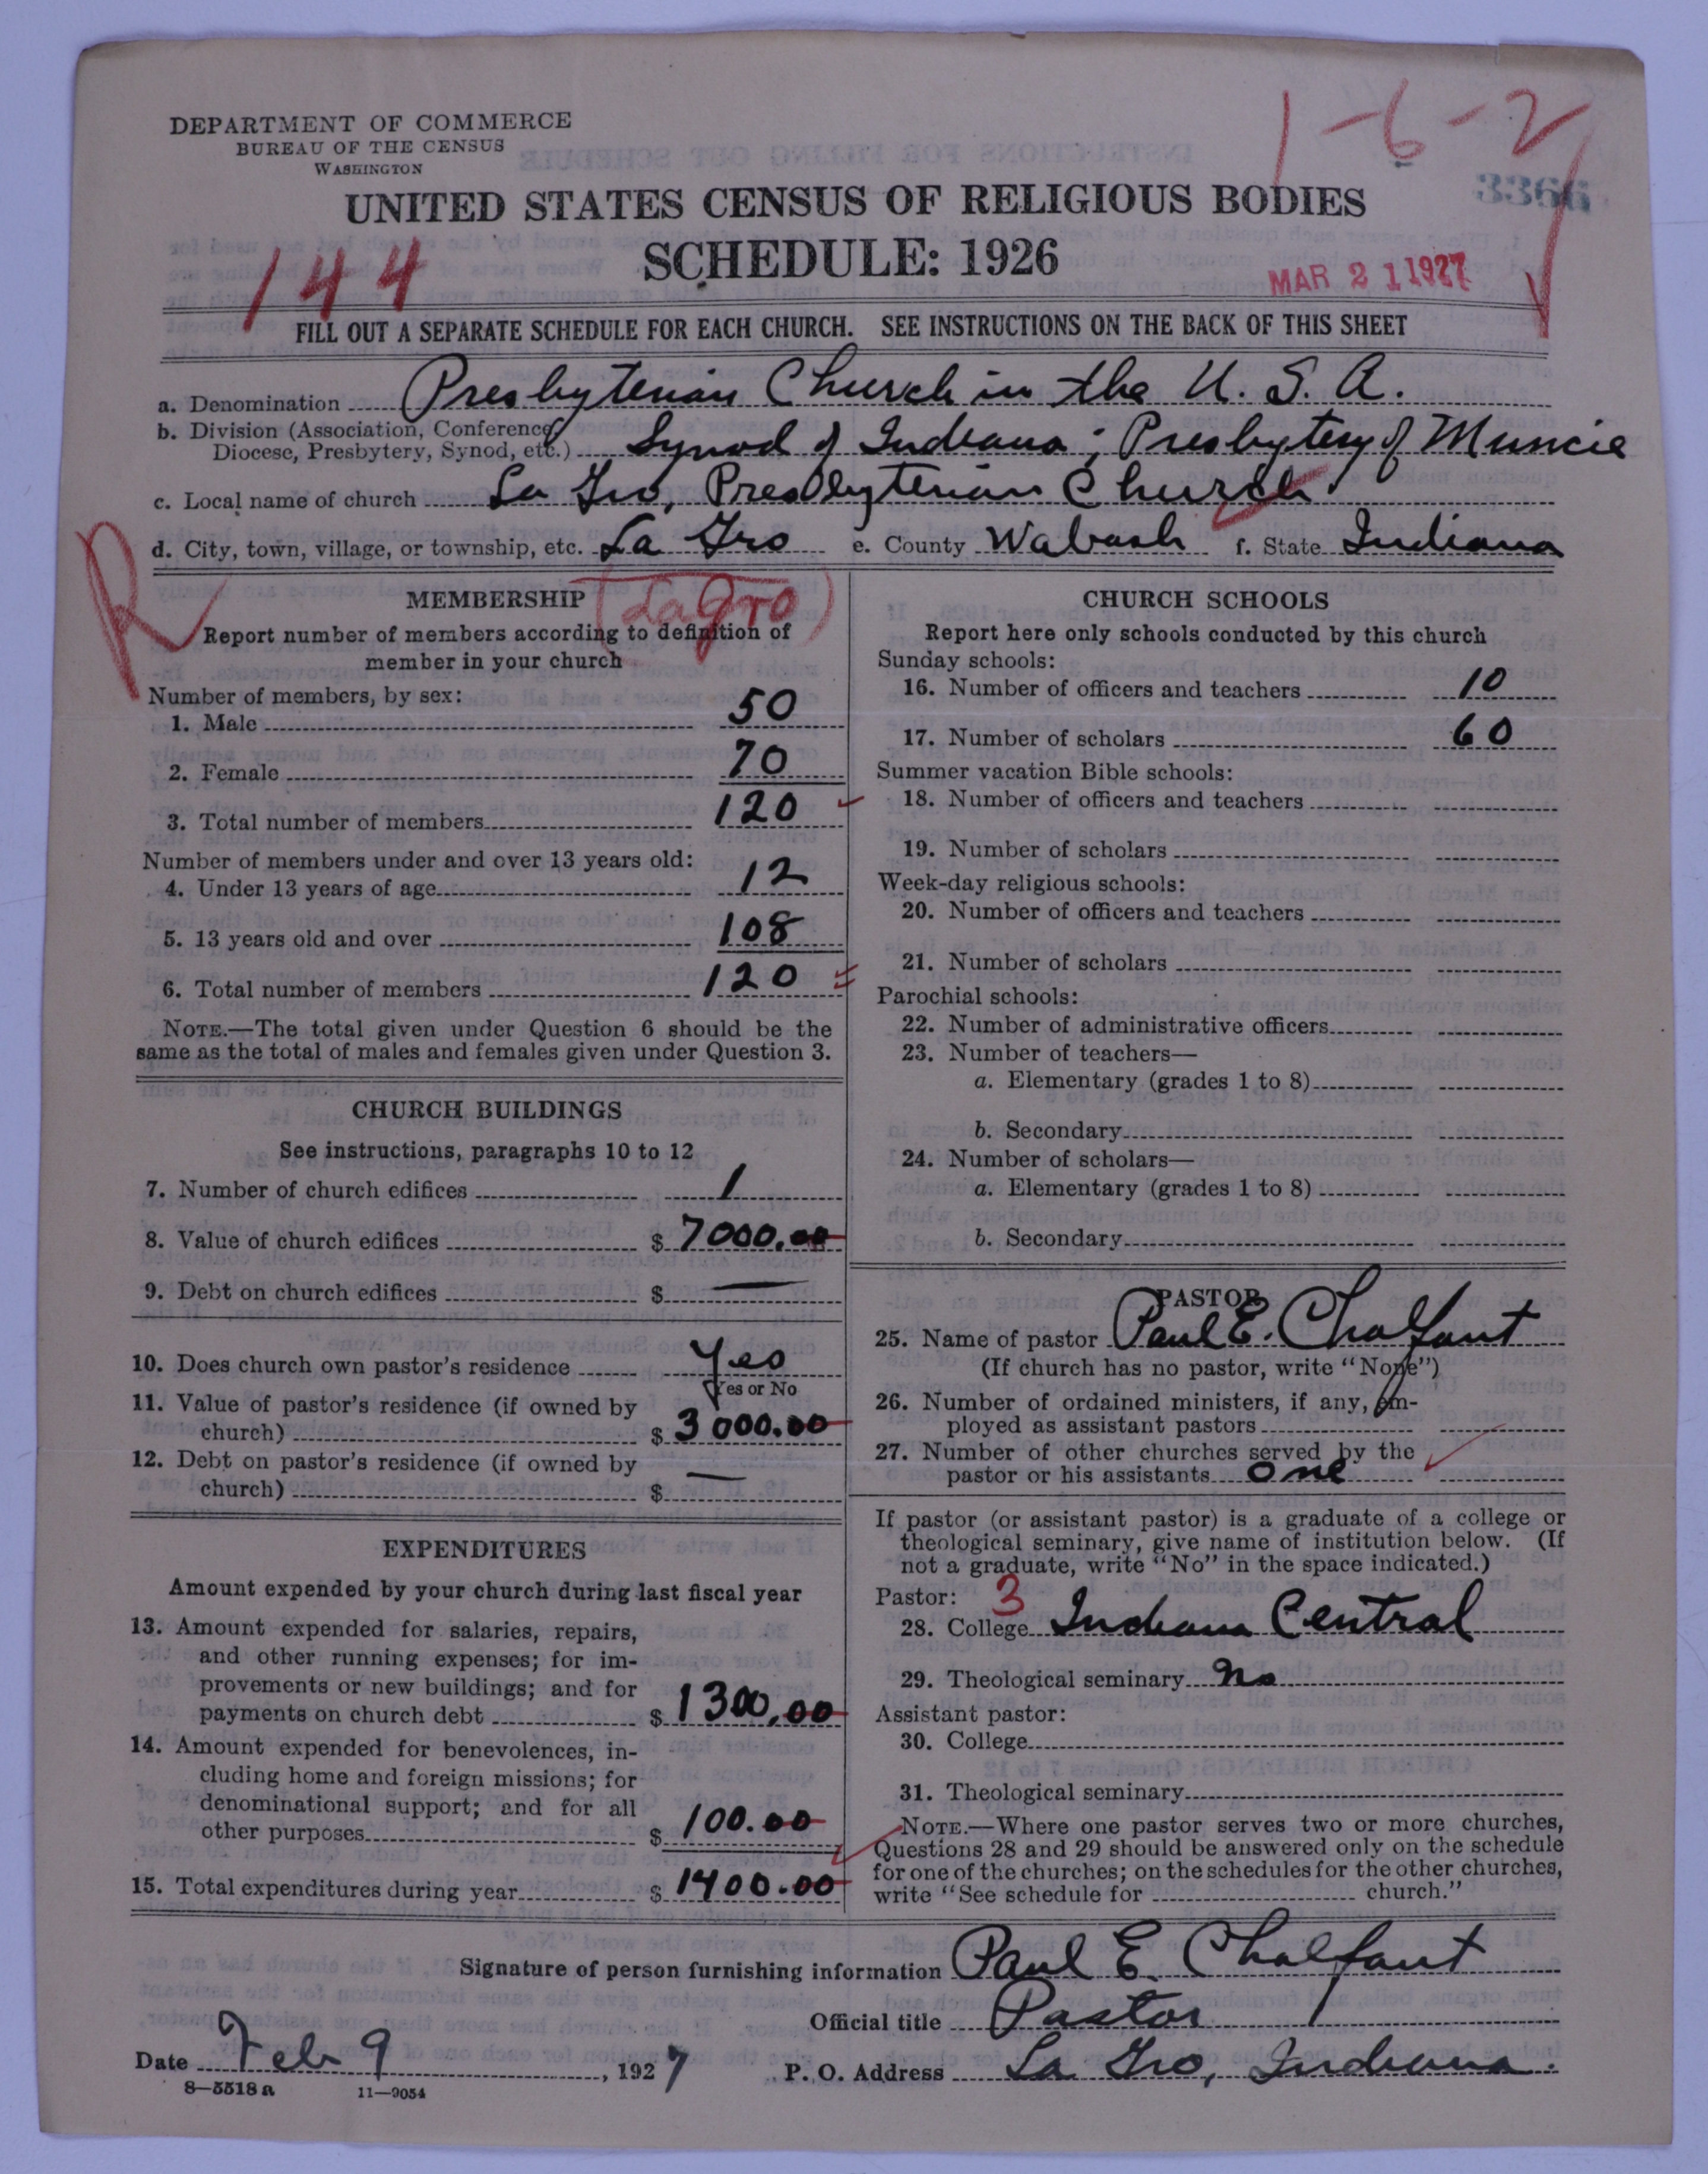 DEPARTMENT OF COMMERCE
BUREAU OF THE CENSUS
WASHINGTON
1-6-2
3366
UNITED STATES CENSUS OF RELIGIOUS BODIES
SCHEDULE: 1926
144
MAR 21 1927
FILL OUT A SEPARATE SCHEDULE FOR EACH CHURCH. SEE INSTRUCTIONS ON THE BACK OF THIS SHEET
a. Denomination Presbyterian Church in the U. S. A.
b. Division (Association, Conference, Diocese, Presbytery, Synod, etc.) Synod of Indiana; Presbytery of Muncie
c. Local name of church La Gro, Presbyterian Church
d. City, town, village, or township, etc. La Gro e. County Wabash f. State Indiana
R
(LaGro)
MEMBERSHIP
Report number of members according to definition of
member in your church
Number of members, by sex:
1. Male 50
2. Female 70
3. Total number of members 120
Number of members under and over 13 years old:
4. Under 13 years of age 12
5. 13 years old and over 108
6. Total number of members 120
NOTE.—The total given under Question 6 should be the
same as the total of males and females given under Question 3.
CHURCH BUILDINGS
See instructions, paragraphs 10 to 12
7. Number of church edifices 1
8. Value of church edifices $ 7000.00
9. Debt on church edifices $ —
10. Does church own pastor's residence Yes
Yes or No
11. Value of pastor's residence (if owned by
church) $ 3000.00
12. Debt on pastor's residence (if owned by
church) $ —
EXPENDITURES
Amount expended by your church during last fiscal year
13. Amount expended for salaries, repairs,
and other running expenses; for im-
provements or new buildings; and for
payments on church debt $ 1300.00
14. Amount expended for benevolences, in-
cluding home and foreign missions; for
denominational support; and for all
other purposes $ 100.00
15. Total expenditures during year $ 1400.00
CHURCH SCHOOLS
Report here only schools conducted by this church
Sunday schools:
16. Number of officers and teachers 10
17. Number of scholars 60
Summer vacation Bible schools:
18. Number of officers and teachers
19. Number of scholars
Week-day religious schools:
20. Number of officers and teachers
21. Number of scholars
Parochial schools:
22. Number of administrative officers
23. Number of teachers—
a. Elementary (grades 1 to 8)
b. Secondary
24. Number of scholars—
a. Elementary (grades 1 to 8)
b. Secondary
PASTOR
25. Name of pastor Paul E. Chalfant
(If church has no pastor, write "None")
26. Number of ordained ministers, if any, em-
ployed as assistant pastors
27. Number of other churches served by the
pastor or his assistants one
If pastor (or assistant pastor) is a graduate of a college or
theological seminary, give name of institution below. (If
not a graduate, write "No" in the space indicated.)
Pastor: 3
28. College Indiana Central
29. Theological seminary No
Assistant pastor:
30. College
31. Theological seminary
NOTE.—Where one pastor serves two or more churches,
Questions 28 and 29 should be answered only on the schedule
for one of the churches; on the schedules for the other churches,
write "See schedule for church."
Signature of person furnishing information Paul E. Chalfant
Official title Pastor
Date Feb 9, 1927 P. O. Address La Gro, Indiana.
8—5518 a 11—9054